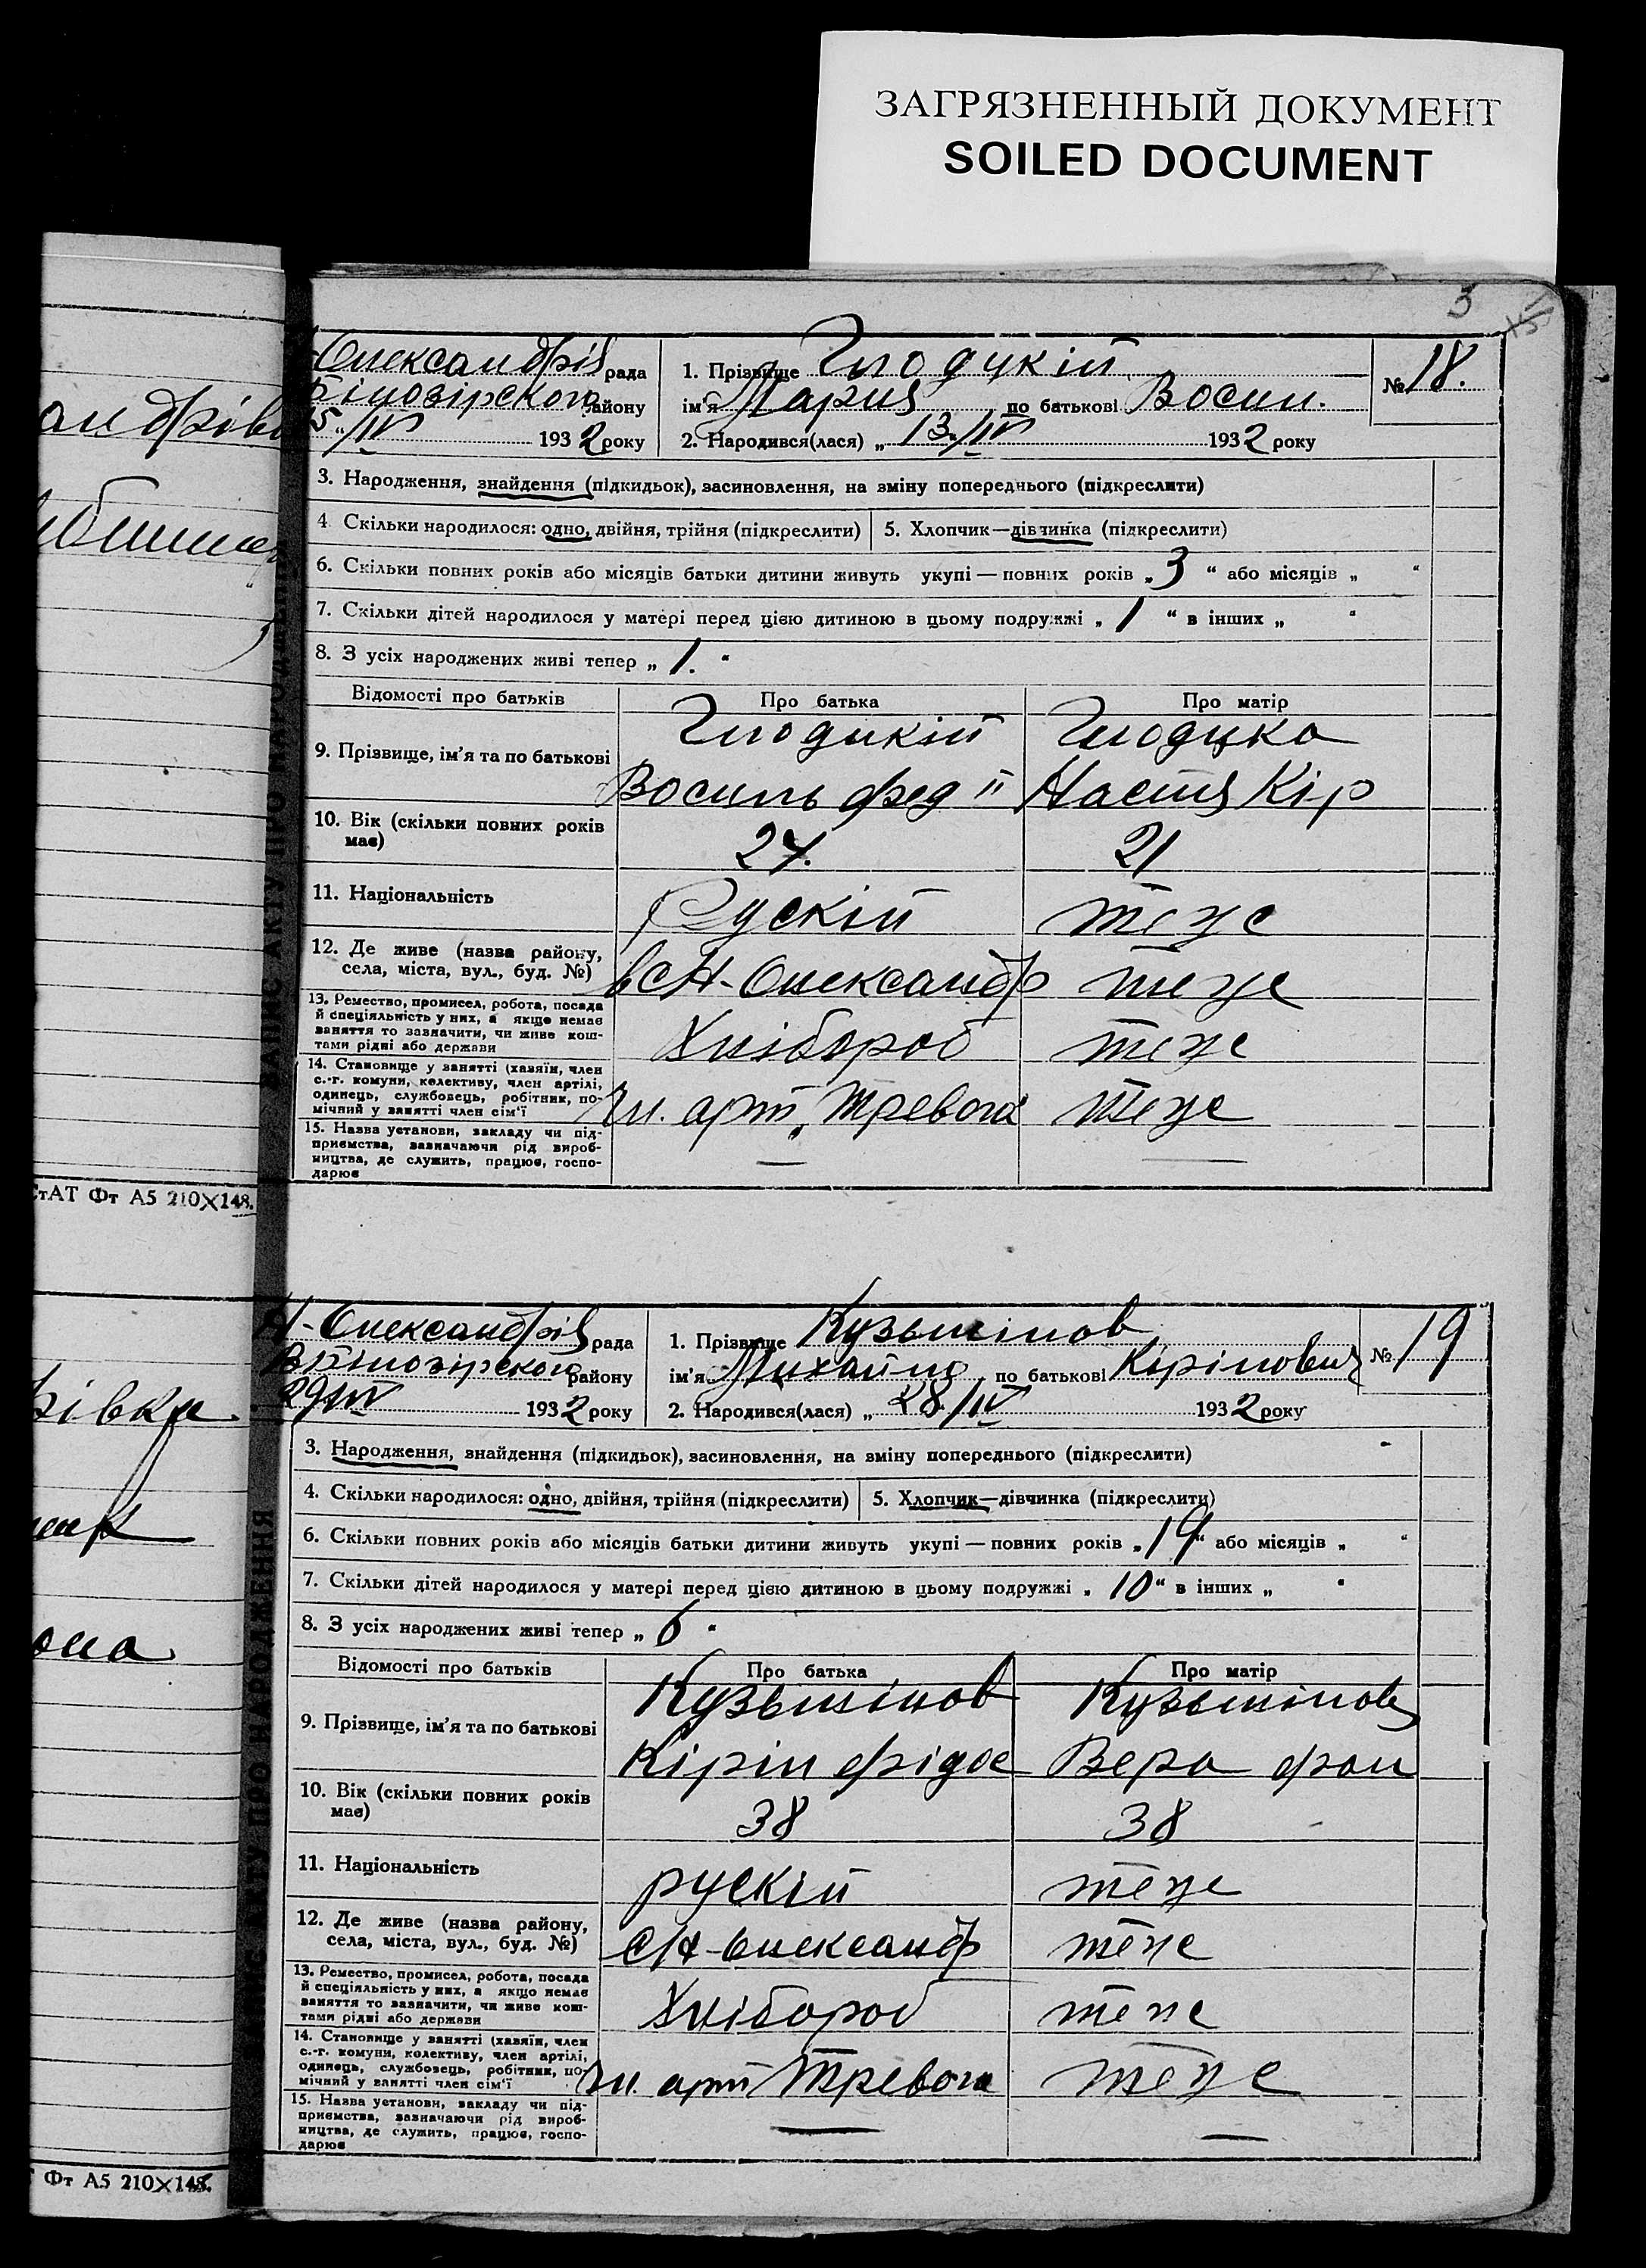 ЗАГРЯЗНЕННЫЙ ДОКУМЕНТ
SOILED DOCUMENT
3
Олександрів рада
Білозірского району
15 "/IV 1932 року
1. Прізвище Глодцкій
ім'я Мария по батькові Восил.
№ 18.
2. Народився(лася) „ 13./IV 1932 року
3. Народження, знайдення (підкидьок), засиновлення, на зміну попереднього (підкреслити)
4 Скільки народилося: одно, двійня, трійня (підкреслити) 5. Хлопчик—дівчинка (підкреслити)
6. Скільки повних років або місяців батьки дитини живуть укупі — повних років „ 3 “ або місяців „ “
7. Скільки дітей народилося у матері перед цією дитиною в цьому подружжі „ 1 “ в інших „ “
8. З усіх народжених живі тепер „ 1. “
Відомості про батьків Про батька Про матір
9. Прізвище, ім'я та по батькові
Глодцкій Глодцка
Восиль Фед Настя Кір
10. Вік (скільки повних років має) 27. 21
11. Національність Рускій теже
12. Де живе (назва району, села, міста, вул., буд. №) в с Н-Олександр теже
13. Ремество, промисел, робота, посада й спеціяльність у них, а якщо немає заняття то зазначити, чи живе коштами рідні або держави
Хлібороб теже
14. Становище у занятті (хазяїн, член с.-г. комуни, колективу, член артілі, одинець, службовець, робітник, помічний у занятті член сім'ї
Чл. арт „Тревога теже
15. Назва установи, закладу чи підприємства, зазначаючи рід виробництва, де служить, працює, господарює
— —
СтАТ Фт А5 210×148.
Н-Олександрів рада
Білозірского району
29/IV 1932 року
1. Прізвище Кузьмінов
ім'я Михайло по батькові Кірілович
№ 19
2. Народився(лася) „ 28./IV 1932 року
3. Народження, знайдення (підкидьок), засиновлення, на зміну попереднього (підкреслити)
4. Скільки народилося: одно, двійня, трійня (підкреслити) 5. Хлопчик—дівчинка (підкреслити)
6. Скільки повних років або місяців батьки дитини живуть укупі — повних років „ 19 “ або місяців „ “
7. Скільки дітей народилося у матері перед цією дитиною в цьому подружжі „ 10 “ в інших „ “
8. З усіх народжених живі тепер „ 6 “
Відомості про батьків Про батька Про матір
9. Прізвище, ім'я та по батькові
Кузьмінов Кузьмінова
Кіріл Фідос Вера
10. Вік (скільки повних років має) 38 38
11. Національність рускій теже
12. Де живе (назва району, села, міста, вул., буд. №) с Н-Олександр теже
13. Ремество, промисел, робота, посада й спеціяльність у них, а якщо немає заняття то зазначити, чи живе коштами рідні або держави
Хлібороб теже
14. Становище у занятті (хазяїн, член с.-г. комуни, колективу, член артілі, одинець, службовець, робітник, помічний у занятті член сім'ї
Чл. арт Тревога теже
15. Назва установи, закладу чи підприємства, зазначаючи рід виробництва, де служить, працює, господарює
— —
Фт А5 210×148.